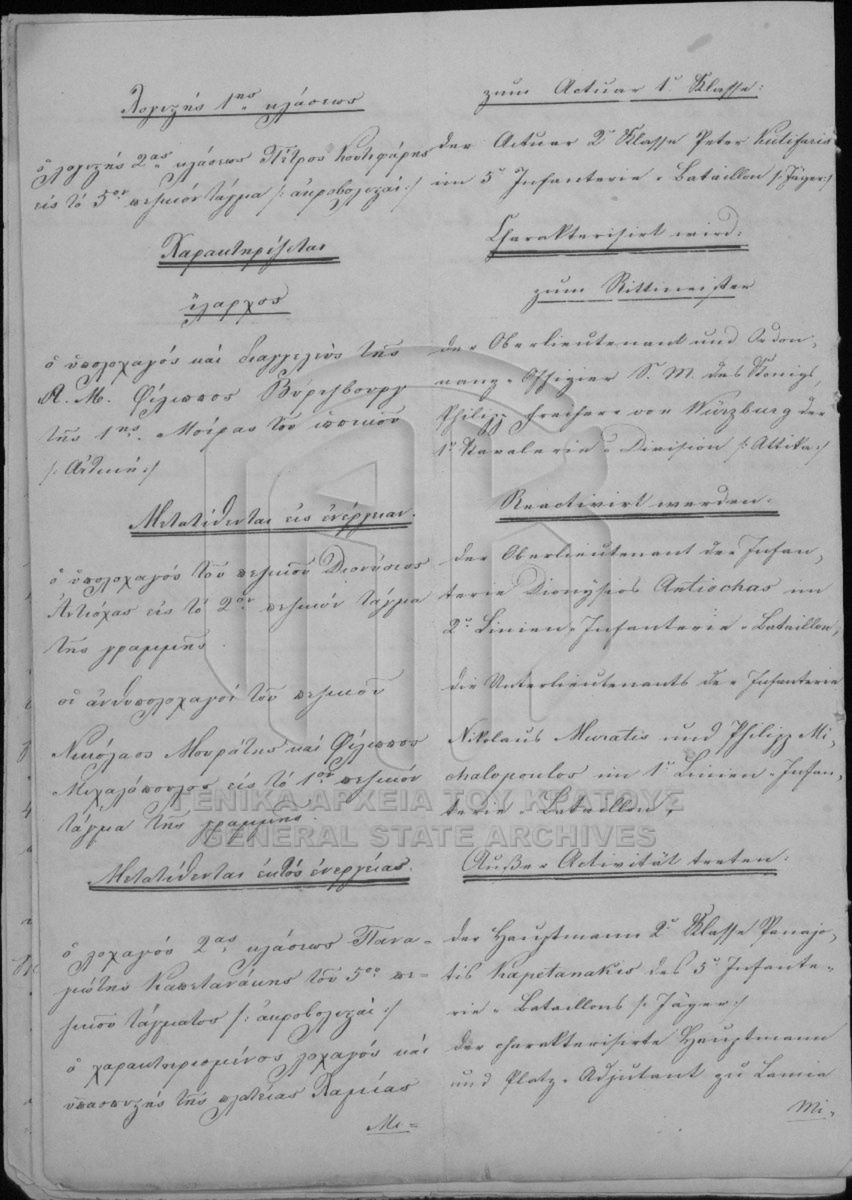 Λογιστής 1ης κλάσεως
ὁ λογιστής 2ας κλάσεως Πέτρος Κουτιφάρης
εἰς τό 5ον πεζικόν τάγμα /: ἀκροβολισταί :/
Χαρακτηρίζεται
ἴλαρχος
ὁ ὑπολοχαγός καί διαγγελεύς τῆς
Α. Μ. Φίλιππος Βύρτζβουργ
τῆς 1ης Μοίρας τοῦ ἱππικοῦ
/: Ἀττική :/
Μετατίθενται εἰς ἐνέργειαν.
ὁ ὑπολοχαγός τοῦ πεζικοῦ Διονύσιος
Ἀντιόχας εἰς τό 2ον πεζικόν τάγμα
τῆς γραμμῆς.
οἱ ἀνθυπολοχαγοί τοῦ πεζικοῦ
Νικόλαος Μουράτης καί Φίλιππος
Μιχαλόπουλος εἰς τό 1ον πεζικόν
τάγμα τῆς γραμμῆς.
Μετατίθενται ἐκτός ἐνεργείας.
ὁ λοχαγός 2ας κλάσεως Πανα-
γιώτης Καπετανάκης τοῦ 5ου πε-
ζικοῦ τάγματος /: ἀκροβολισταί :/
ὁ χαρακτηρισμένος λοχαγός καί
ὑπασπιστής τῆς πλατείας Λαμίας
Μι=
zum Actuar 1r Klasse:
der Actuar 2r Klasse Peter Kutifaris
im 5n Infanterie-Bataillon /: Jäger :/
Charakterisirt wird:
zum Rittmeister
der Oberlieutenant und Ordon-
nanz-Offizier S. M. des Königs,
Philipp Freiherr von Würzburg der
1n Kavalerie-Division /: Attika :/
Reactivirt werden:
der Oberlieutenant der Infan-
terie Dionysios Antiochas im
2n Linien-Infanterie-Bataillon,
die Unterlieutenants der Infanterie
Nikolaus Muratis und Philipp Mi-
chalopoulos im 1n Linien-Infan-
terie-Bataillon,
Außer Activität treten:
der Hauptmann 2r Klasse Panajo-
tis Kapetanakis des 5n Infante-
rie-Bataillons /: Jäger :/
der charakterisirte Hauptmann
und Platz-Adjutant zu Lamia
Mi-
ΓΕΝΙΚΑ ΑΡΧΕΙΑ ΤΟΥ ΚΡΑΤΟΥΣ
GENERAL STATE ARCHIVES